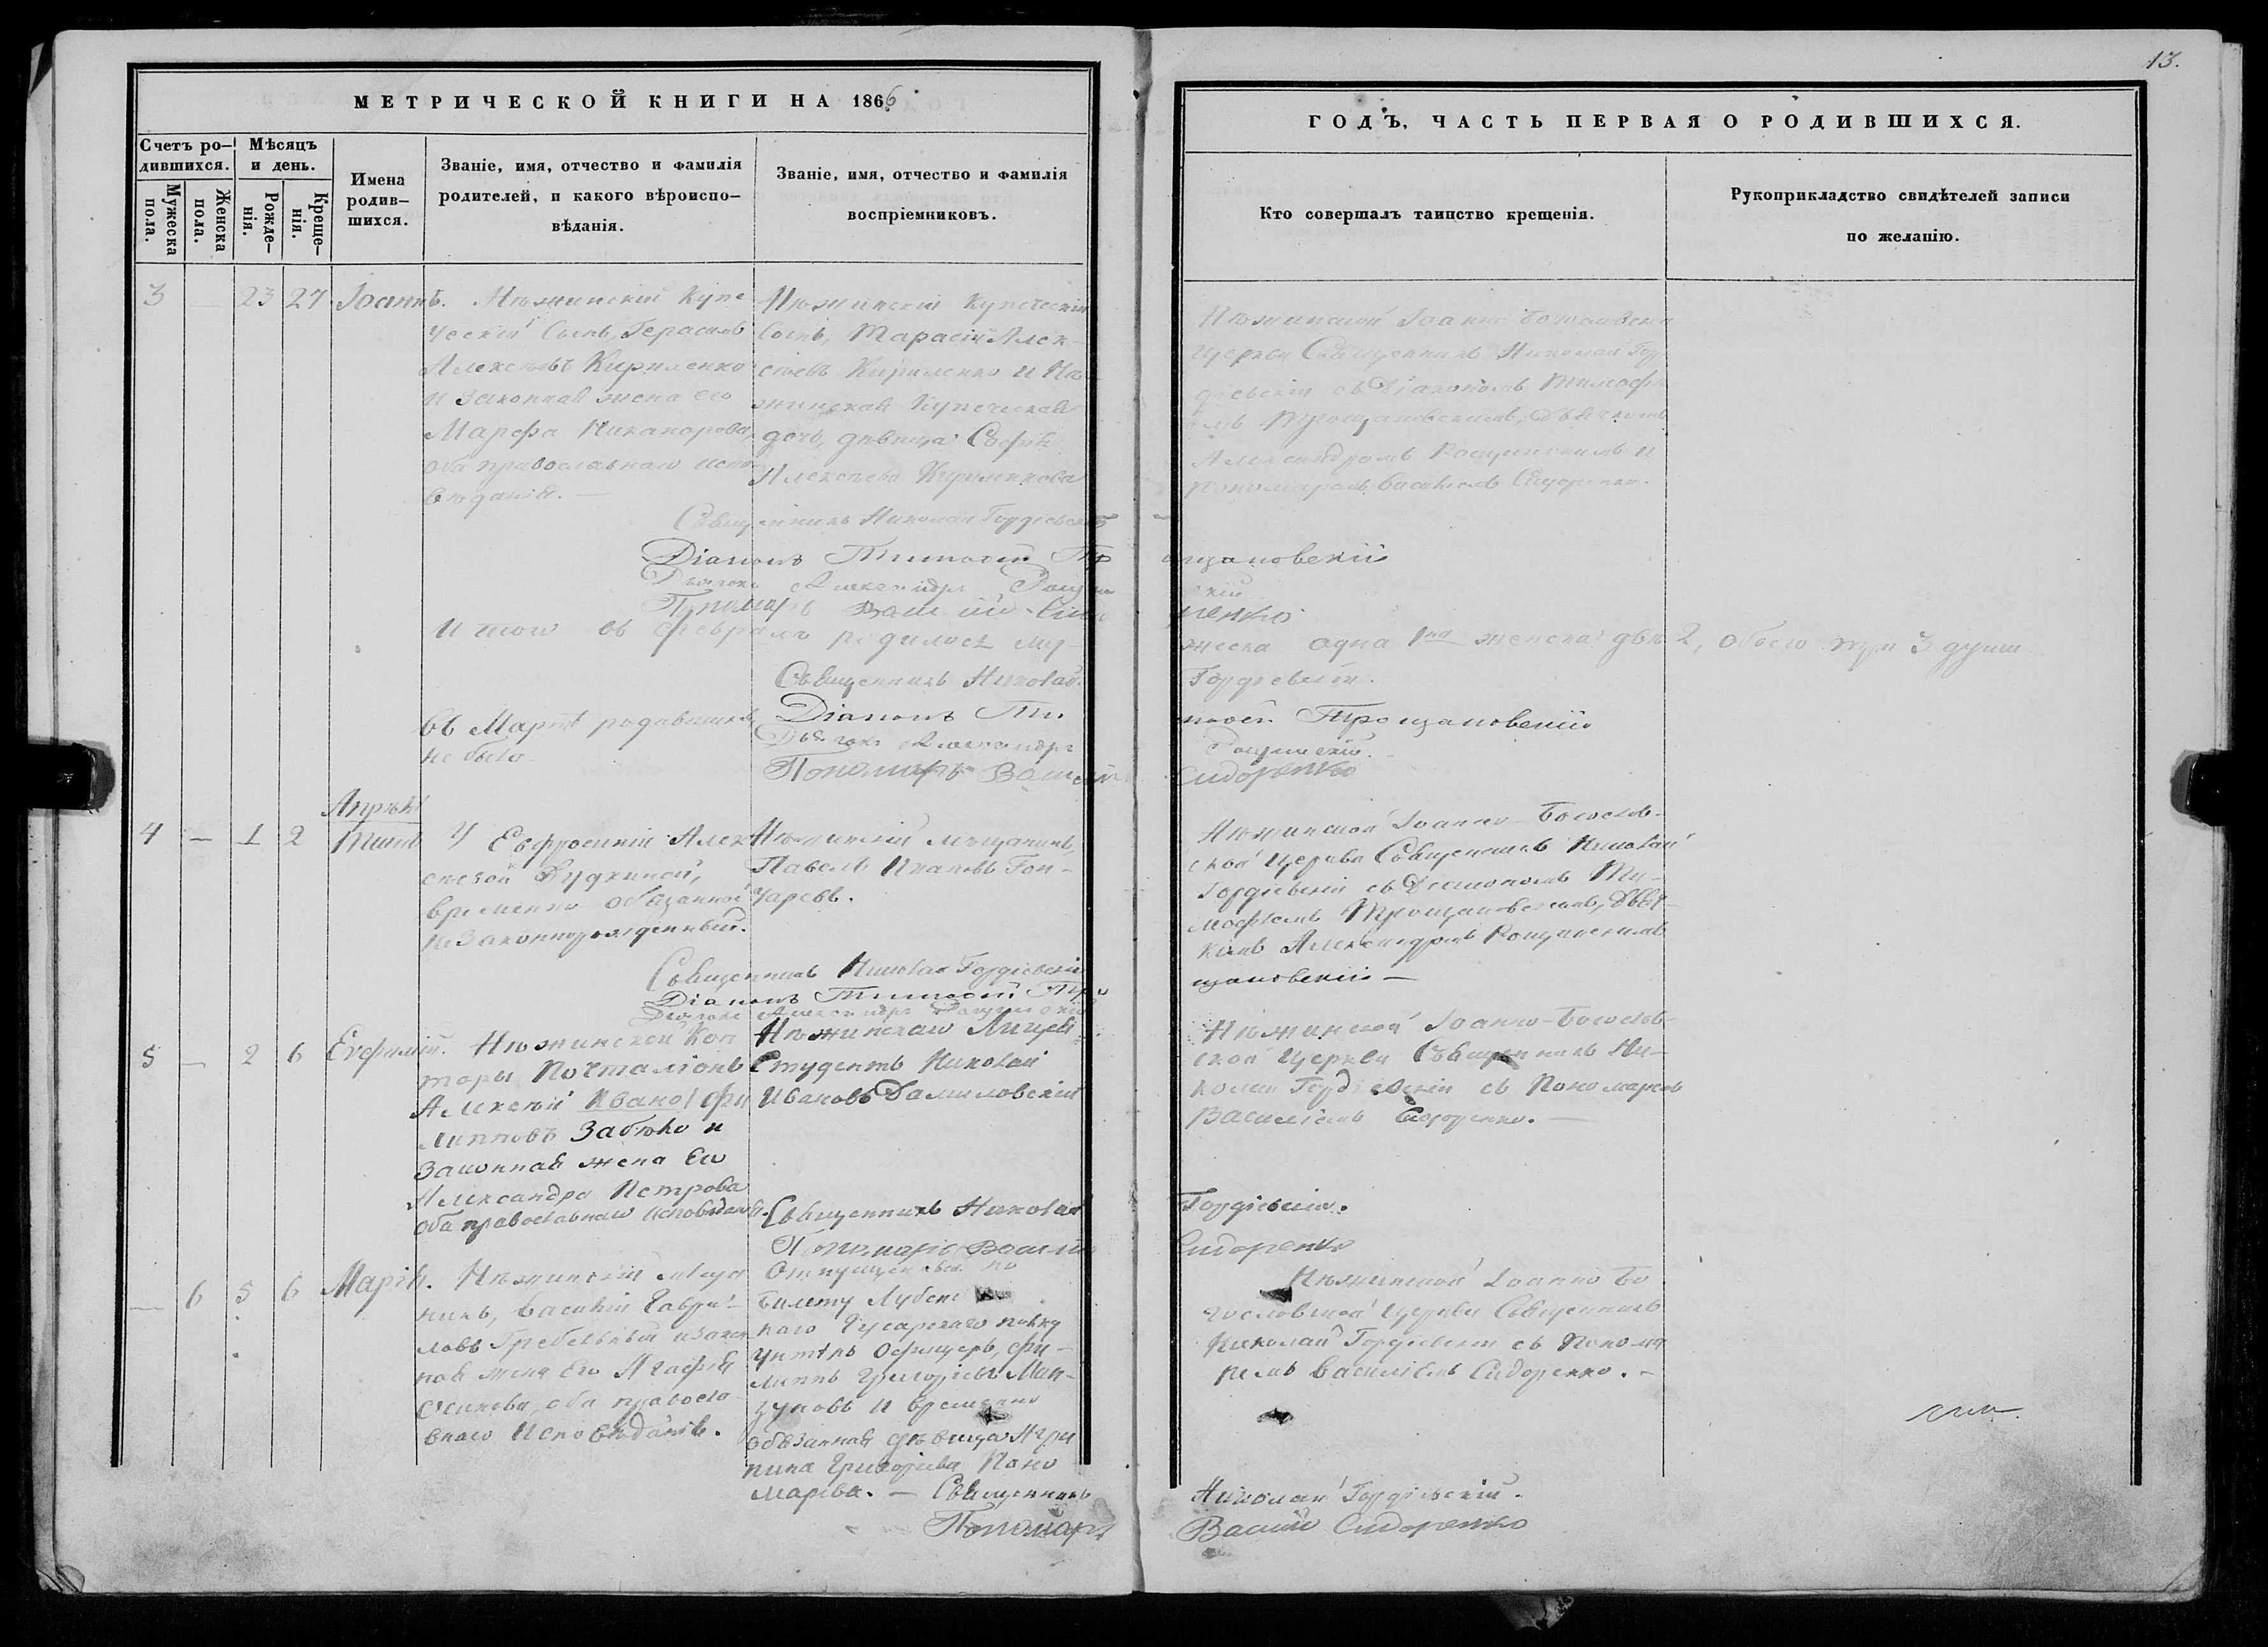 13.
МЕТРИЧЕСКОЙ КНИГИ НА 1866
Счетъ ро-
дившихся.
Мужеска
пола.
Женска
пола.
Мѣсяцъ
и день.
Рожде-
нія.
Креще-
нія.
Имена
родив-
шихся.
Званіе, имя, отчество и фамилія
родителей, и какого вѣроиспо-
вѣданія.
Званіе, имя, отчество и фамилія
воспріемниковъ.
ГОДЪ, ЧАСТЬ ПЕРВАЯ О РОДИВШИХСЯ.
Кто совершалъ таинство крещенія.
Рукоприкладство свидѣтелей записи
по желанію.
3 — 23 27 Іоаннъ.
Нѣжинскій Купе
ческій Сынъ, Герасимъ
Алексѣевъ Кириленко
и Законная жена его
Марфа Никанорова,
оба православнаго испо
вѣданія. —
Нѣжинскій Купеческій
Сынъ, Тарасій Алек-
сѣевъ Кириленко и Нѣ
жинская Купеческая
дочь, дѣвица Софія
Алексѣева Кириленкова
Нѣжинской Іоанно Богословской
Церкви Священникъ Николай Гор
діевскій съ Діакономъ Тимофе
емъ Трощановскимъ, Дьячкомъ
Александромъ Рощинскимъ и
Пономаремъ Василіемъ Сидоренко.
Священникъ Николай Гордіевскій
Діаконъ Тимофей Трощановскій
Дьячокъ Александръ
Пономарь Василій Сидоренко
Итого въ Февралѣ родилось мужеска одна 1на женска двѣ 2, обоего три 3 души
Священникъ Николай Гордіевскій.
Діаконъ Тимофей Трощановскій
Дьячокъ Александръ Рощинскій
Пономарь Василій Сидоренко
Въ Мартѣ родившихся
не было
Апрѣль
4 — 1 2 Титъ
У Евфросиніи Алек
сѣевой
временно обязанной
незаконнорожденный.
Нѣжинскій мѣщанинъ,
Павелъ Ивановъ Гон-
чаревъ.
Нѣжинской Іоанно-Богослов-
ской Церкви Священникъ Николай
Гордіевскій съ Діакономъ Ти-
мофеемъ Трощановскимъ, Дьяч-
комъ Александромъ Рощинскимъ
Священникъ Николай Гордіевскій
Діаконъ Тимофей Трощановскій —
Дьячокъ Александръ Рощинскій
5 — 2 6 Евфимій.
Нѣжинской Кон
торы Почталіонъ
Алексѣй Иванов Фи
липповъ Забѣло и
Законная жена Его
Александра Петрова
оба православнаго исповѣданія.
Нѣжинскаго Лицея
Студентъ Николай
Ивановъ Даниловскій
Нѣжинской Іоанно-Богослов-
ской Церкви Священникъ Ни-
колай Гордіевскій съ Пономаремъ
Василіемъ Сидоренко. —
Священникъ Николай Гордіевскій.
Пономарь Василій Сидоренко
— 6 5 6 Марія.
Нѣжинскій мѣща
нинъ, Василій Гаври-
ловъ Гребельный и закон
ная жена Его Агафія
Осипова, оба правосла
внаго Исповѣданія.
Отпущенный по
билету Лубенс
каго Гусарскаго полку
Унтеръ Офицеръ, Фи-
липпъ Григорьевъ Ман-
зуковъ и временно
обязанная дѣвица Агри
пина Григорьева Поно
марева. —
Нѣжинской Іоанно Бо
гословской Церкви Священникъ
Николай Гордіевскій съ Понома
ремъ Василіемъ Сидоренко. —
Священникъ Николай Гордіевскій.
Пономарь Василій Сидоренко